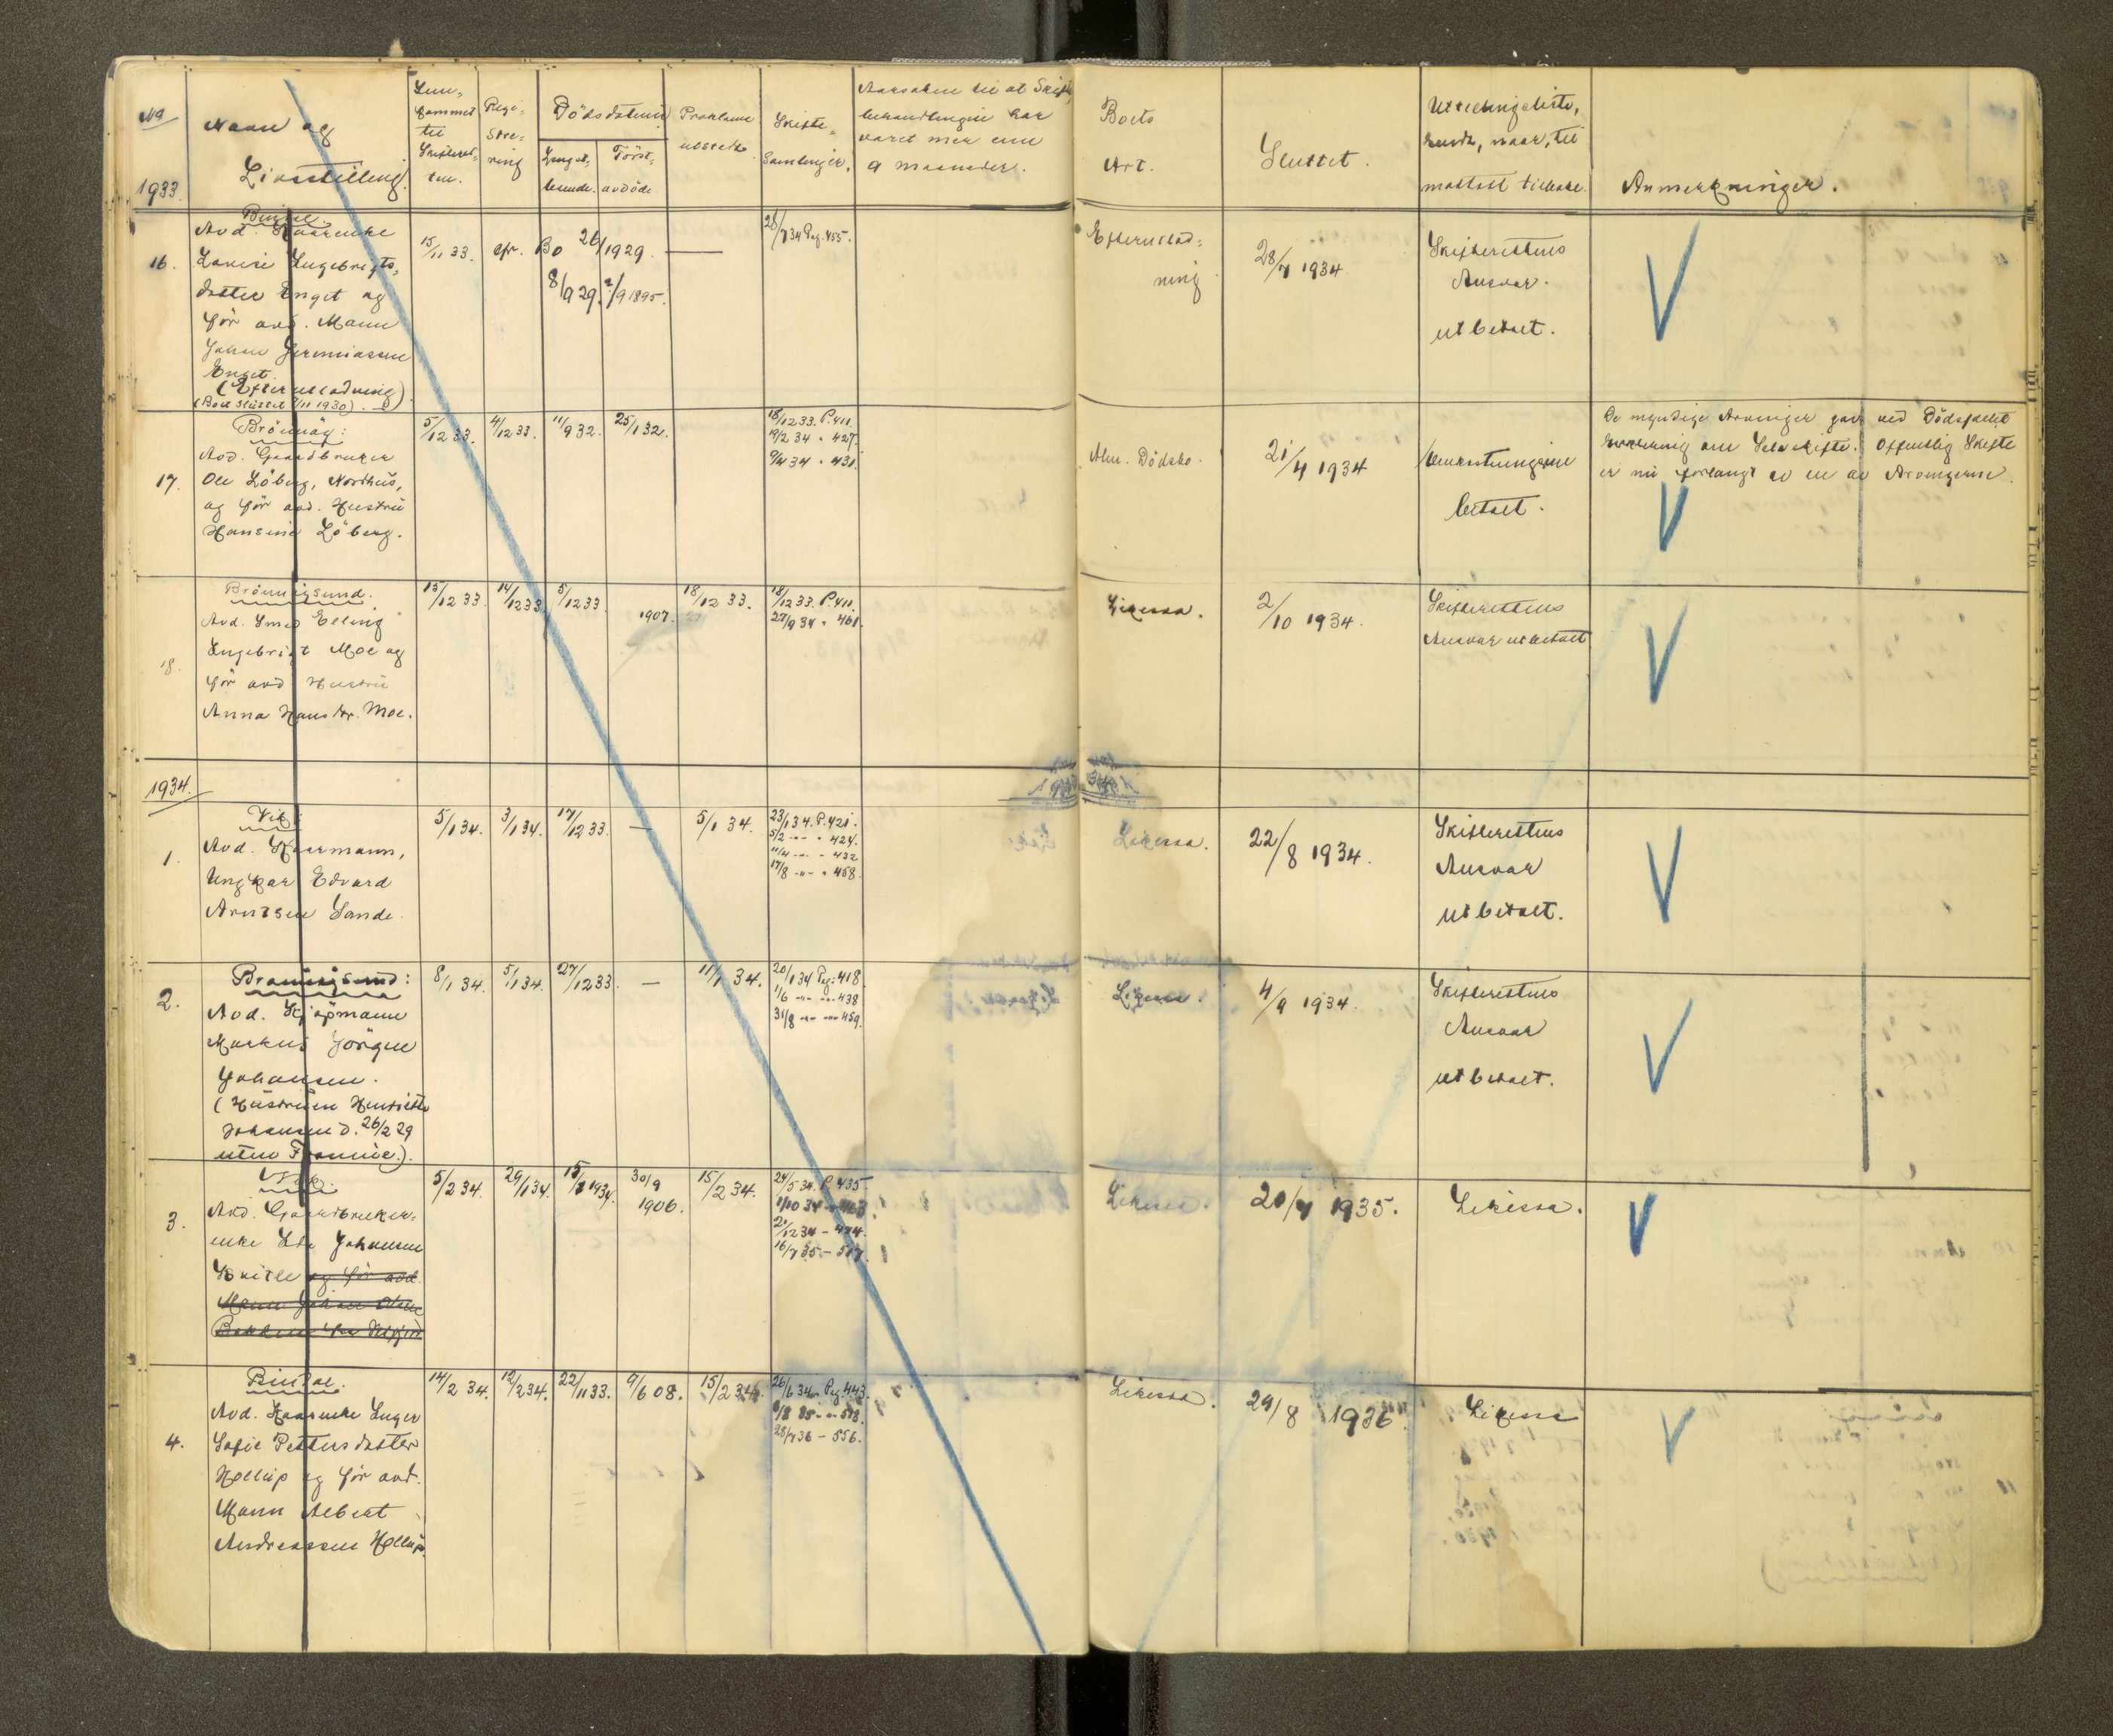 No
1933.
Navn og
Livsstilling.
Ind-
kommet
til
Skifteret-
ten.
Regi-
stre-
ring
Dödsdatum
Længst-
levende.
Först-
avdöde
Proklama
utstedt.
Skifte-
Samlinger.
Aarsaken til at Skifte-
behandlingen har
varet mer enn
9 Maaneder.
Boets
Art.
Sluttet.
Utlodningsliste,
sendt, naar, til
mottatt tilbake.
Anmerkninger.
16.
Bindal.
Avd. Kaarenke
Lovise Ingebrigts-
datter Enget og
för avd. Mann
Johan Jeremiassen
Enget.
(Efterutlodning)
(Boet sluttet /11 1930).
15/11 33.
cfr. Bo 26/1929.
8/9 29.
2/9 1895.
—
28/7 34 Pag. 455.
Efterutlod-
ning
28/7 1934
Skifterettens
Ansvar.
utbetalt.
17.
Brönnöy:
Avd. Gaardbruker
Ole Löberg, Nordhus,
og för avd. Hustru
Hansine Löberg.
5/12 33.
4/12 33.
11/9 32.
25/1 32.
18/12 33. P. 411.
19/2 34 " 427.
9/4 34 " 431.
Alm. Dödsbo.
21/4 1934
betalt.
De myndige Arvinger gav ved Dödsfaldet
Erklæring om Selvskifte. Offentlig Skifte
er nu forlangt av en av Arvingerne.
18.
Brönnöysund.
Avd. Smed Elling
Ingebrigt Moe og
för avd Hustru
Anna Hansdtr. Moe.
15/12 33.
14/12 33.
5/12 33.
1907.
18/12 33.
18/12 33. P. 411.
27/9 34 " 461.
Likessa.
2/10 1934.
Skifterettens
Ansvar utbetalt
1934.
1.
Vik:
Avd. Kaarmann,
Ungkar Edvard
Arntsen Sande.
5/1 34.
3/1 34.
17/12 33.
—
5/1 34.
23/1 34. P. 421.
5/2 -"- " 424.
11/4 -"- " 432
17/8 -"- " 458.
Likessa.
22/8 1934.
Skifterettens
Ansvar
utbetalt.
2.
Brönnöysund:
Avd. Kjöpmann
Markus Jörgen
Johansen.
(Hustruen Henriette
Johansen d. 26/2 29
uten Formue.).
8/1 34.
5/1 34.
27/12 33.
—
11/1 34.
20/1 34 Pag: 418
1/6 -"- -"- 438
31/8 -"- -"- 459.
Likessa.
4/9 1934.
Skifterettens
Ansvar
utbetalt.
3.
Vik.
Avd. Gaardbruker-
enke Johansen
og för avd.
Mann Johan Olsen
5/2 34.
29/1 34.
15/1 1934.
30/9
1906.
15/2 34.
24/5 34. P. 435.
1/10 34 - 463.
21/12 34 - 474.
16/7 35 - 517.
Likessa.
20/7 1935.
Likessa.
4.
Bindal.
Avd. Kaarenke Inger
Sofie Pettersdatter
Hollup og för avd.
Mann Albert
Andreassen Hollup.
14/2 34.
12/2 34.
22/11 33.
9/6 08.
15/2 34.
26/6 34. Pag. 443.
8/8 35 -"- 518.
28/7 36 - 556.
Likessa.
29/8 1936.
Likessa